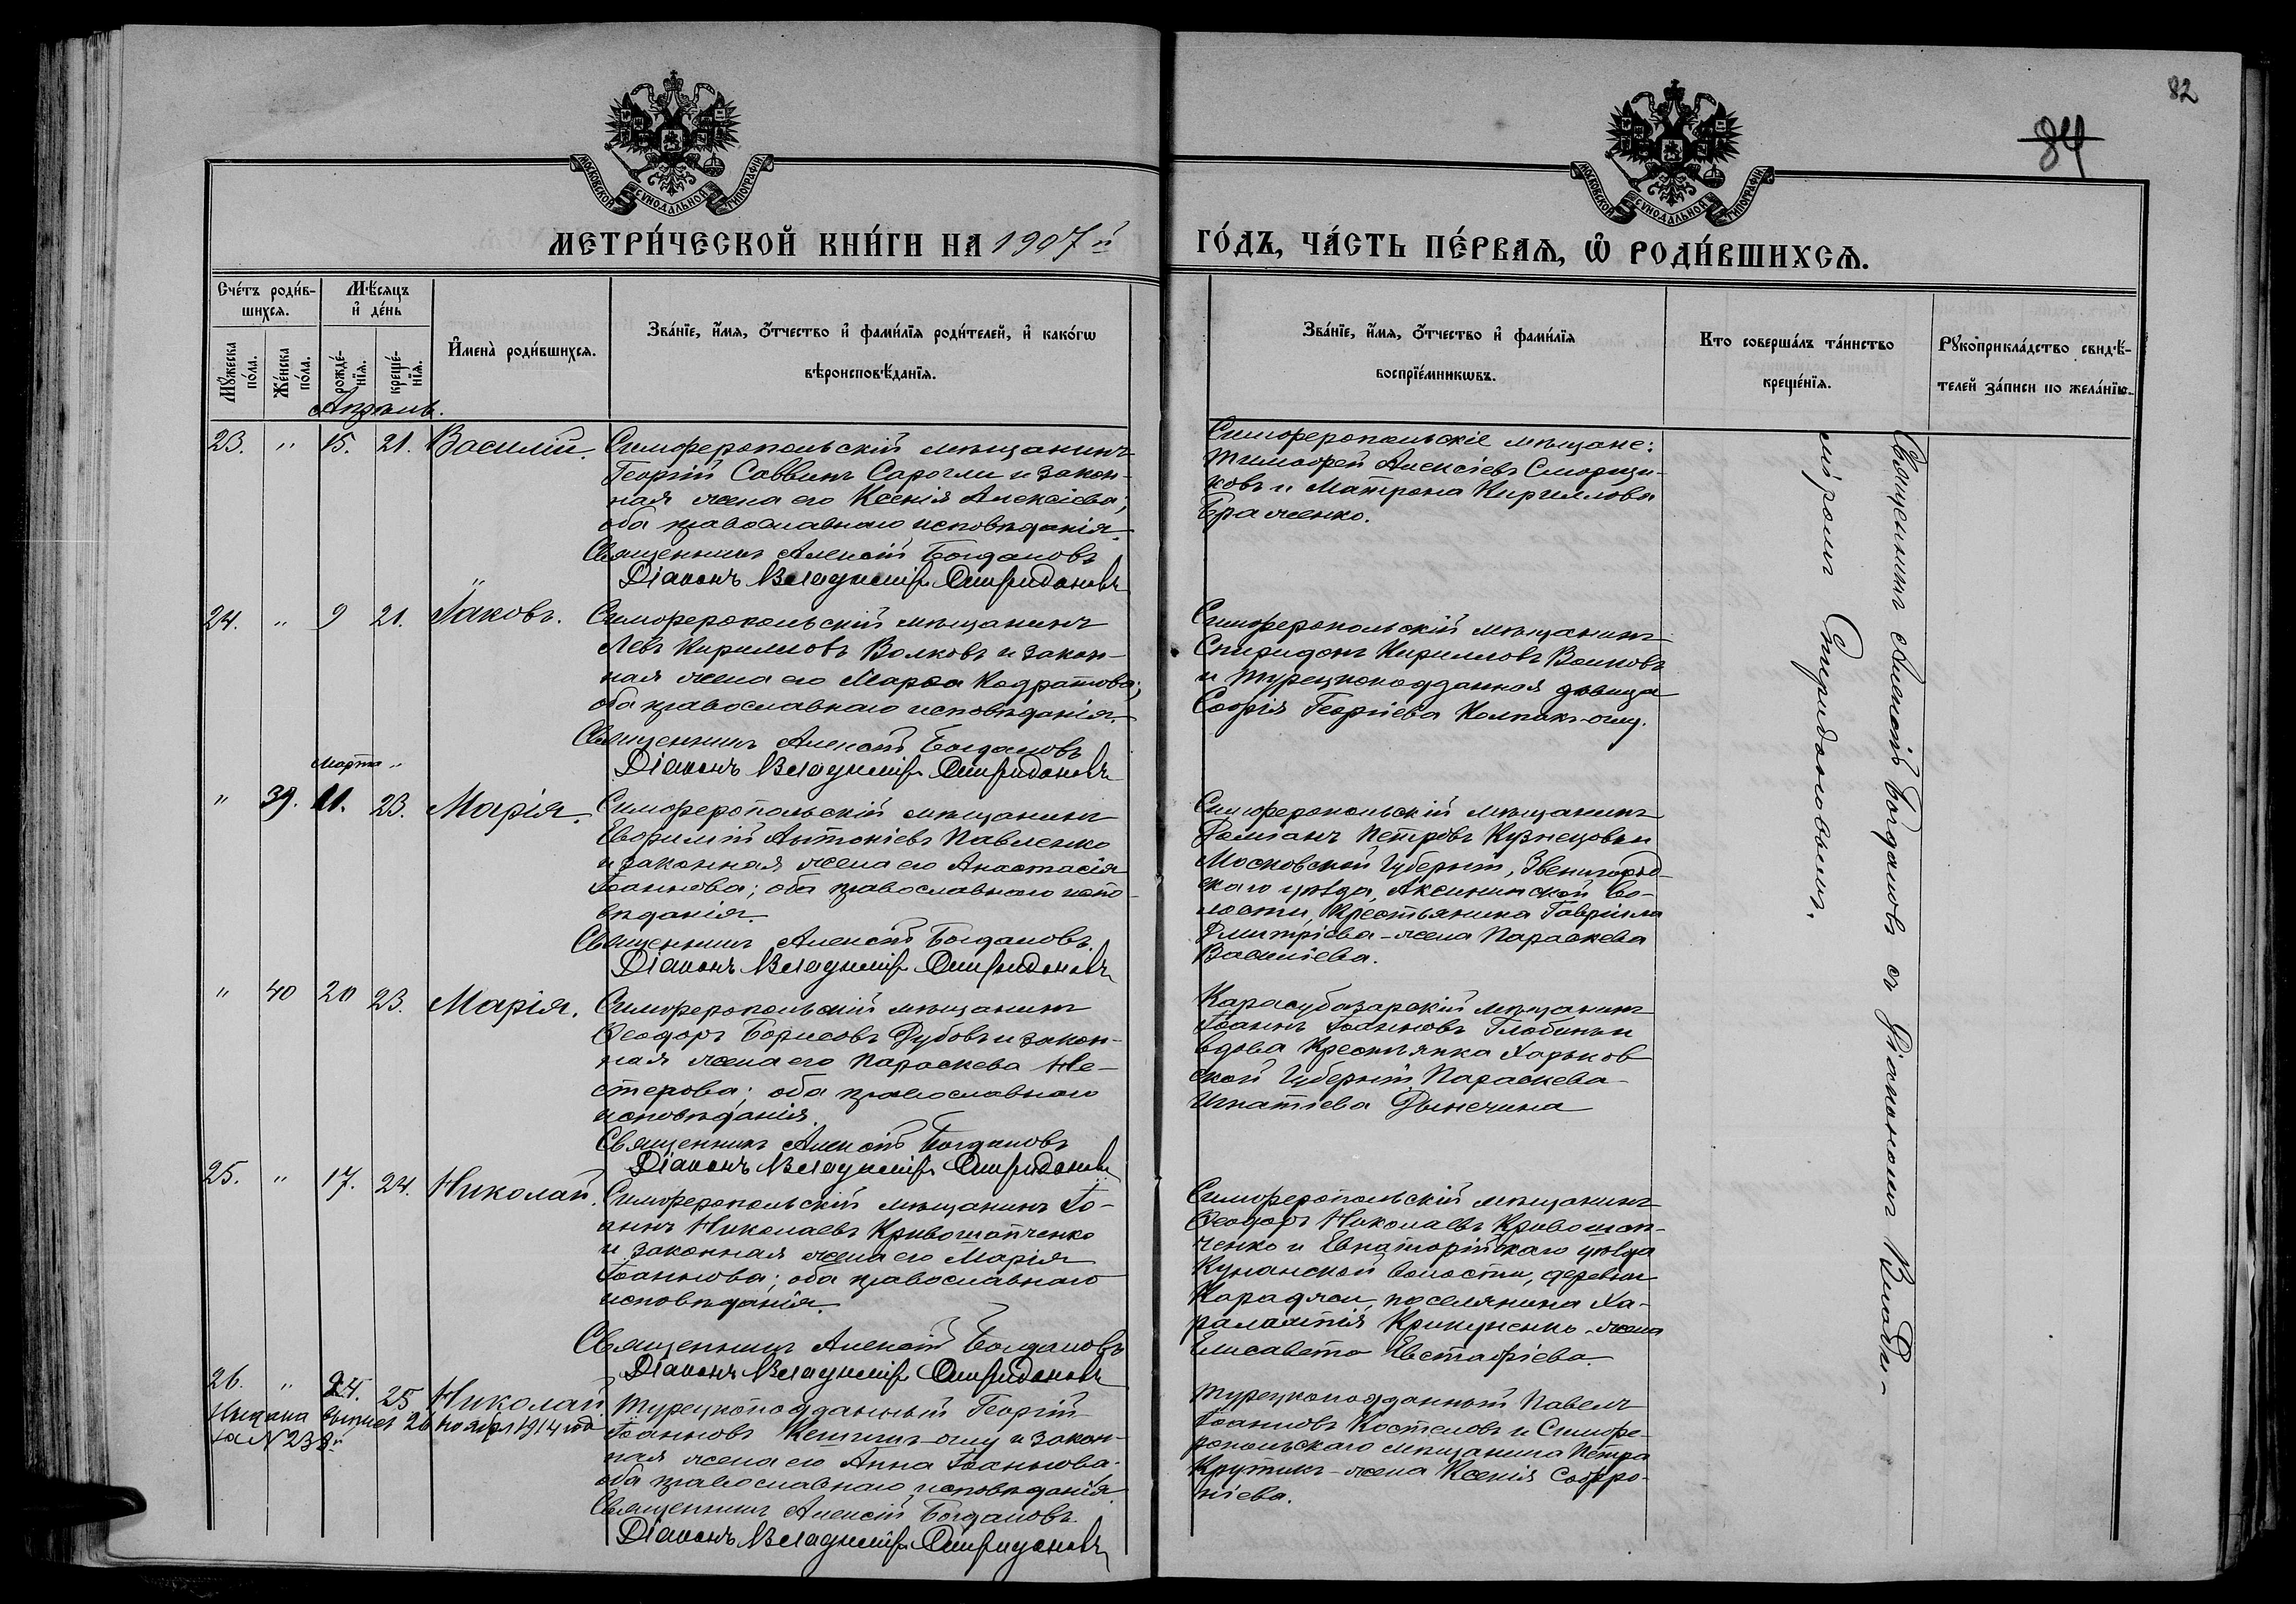 82
84
МОСКОВСКОЙ СѴНОДАЛЬНОЙ ТИПОГРАФІИ
МОСКОВСКОЙ СѴНОДАЛЬНОЙ ТИПОГРАФІИ
МЕТРИ́ЧЕСКОЙ КНИ́ГИ НА 1907й
ГО́ДЪ, ЧА́СТЬ ПЕ́РВАѦ, Ѡ҆ РОДИ́ВШИХСѦ.
Сче́тъ роди́в-
шихсѧ.
Мѣ́сѧцъ
и҆ де́нь
Мꙋ́жеска
по́ла.
Же́нска
по́ла.
рожде́-
нїѧ.
креще́-
нїѧ.
И҆мена̀ роди́вшихсѧ.
Зва́нїе, и҆́мѧ, ѻ҆́тчество и҆ фами́лїѧ роди́телей, и҆ како́гѡ
вѣроисповѣ́данїѧ.
Зва́нїе, и҆́мѧ, ѻ҆́тчество и҆ фами́лїѧ
воспрїе́мникѡвъ.
Кто соверша́лъ та́инство
креще́нїѧ.
Рꙋкоприкла́дство свидѣ́-
телей за́писи по жела́нїю.
Апрѣль.
23. " 15. 21. Василій.
Симферопольскій мѣщанинъ
Георгій Саввинъ Сарогли и закон-
ная жена его Ксенія Алексіева;
оба православнаго исповѣданія.
Священникъ Алексій Богдановъ
Діаконъ Владиміръ Спиридоновъ
Симферопольскіе мѣщане:
Тимофей Алексіевъ Сморщи-
ковъ и Матрона Кириллова
Браженко.
24. " 9 21. Іаковъ.
Симферопольскій мѣщанинъ
Левъ Кирилловъ Волковъ и закон-
ная жена его Марѳа Кодратова;
оба православнаго исповѣданія.
Священникъ Алексій Богдановъ
Діаконъ Владиміръ Спиридоновъ
Симферопольскій мѣщанинъ
Спиридонъ Кирилловъ Волковъ
и турецкоподданная дѣвица
Софія Георгіева Колпакъ-оглу.
Марта "
" 39. 11. 23. Марія.
Симферопольскій мѣщанинъ
Евфимій Антоніевъ Павленко
и законная жена его Анастасія
Іоаннова; оба православнаго испо-
вѣданія.
Священникъ Алексій Богдановъ.
Діаконъ Владиміръ Спиридоновъ
Симферопольскій мѣщанинъ
Даміанъ Петровъ Кузнецовъ и
Московской губерніи, Звенигород-
скаго уѣзда, Аксининской во-
лости, крестьянина Гавріила
Дмитріева - жена Параскева
Васильева.
" 40 20 23. Марія.
Симферопольскій мѣщанинъ
Ѳеодоръ Борисовъ Дубовъ и закон-
ная жена его Параскева Не-
стерова; оба православнаго
исповѣданія.
Священникъ Алексій Богдановъ
Діаконъ Владиміръ Спиридоновъ
Карасубазарскій мѣщанинъ
Іоаннъ Іоанновъ Глобинъ и
вдова крестьянка Харьков-
ской губерніи Параскева
Игнатіева Дынечина
25. " 17. 24. Николай.
Симферопольскій мѣщанинъ Іо-
аннъ Николаевъ Кривошапченко
и законная жена его Марія
Іоаннова; оба православнаго
исповѣданія.
Священникъ Алексій Богдановъ
Діаконъ Владиміръ Спиридоновъ
Симферопольскій мѣщанинъ
Ѳеодоръ Николаевъ Кривошап-
ченко и Евпаторійскаго уѣзда
Кунанской волости, деревни
Караджи, поселянина Ха-
рлампія Крикуненко - жена
Елисавета Евстафіева.
26. " 24. 25 Николай
выписъ 26 ноября 1914 год
за № 238й
Турецкоподданный Георгій
Іоанновъ Кешишъ-оглу и закон-
ная жена его Анна Іоаннова
оба православнаго исповѣданія.
Священникъ Алексій Богдановъ.
Діаконъ Владиміръ Спиридоновъ
Турецкоподданный Павелъ
Іоанновъ Костеловъ и Симфе-
ропольскаго мѣщанина Петра
Крутикъ - жена Ксенія Софро-
ніева.
Священникъ Алексій Богдановъ съ діакономъ Влади-
міромъ Спиридоновымъ.